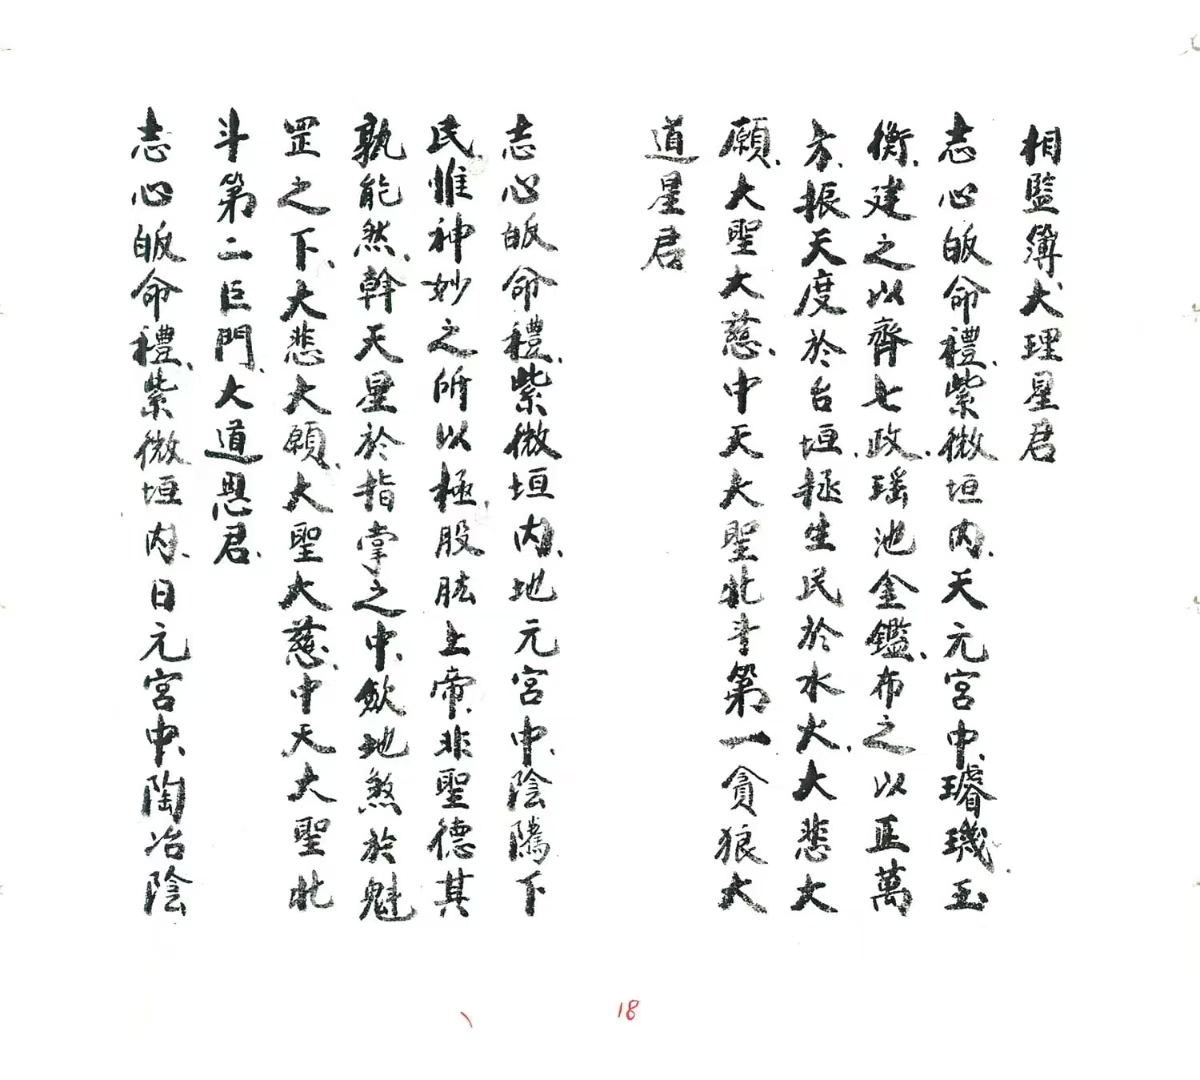 相監簿大理星君
志心皈命禮紫微垣内天元宮中璿璣玉
衡建之以齊七政瑤池金鑑布之以正萬
方振天度於台垣拯生民於水火大悲大
願大聖大慈中天大聖北斗第一貪狼大
道星君
志心皈命禮紫微垣内地元宮中陰騭下
民惟神妙之所以極股肱上帝非聖德其
孰能然斡天星於指掌之中歛地煞於魁
罡之下大悲大願大聖大慈中天大聖北
斗第二巨門大道恩君
志心皈命禮紫微垣内日元宮中陶冶陰
18